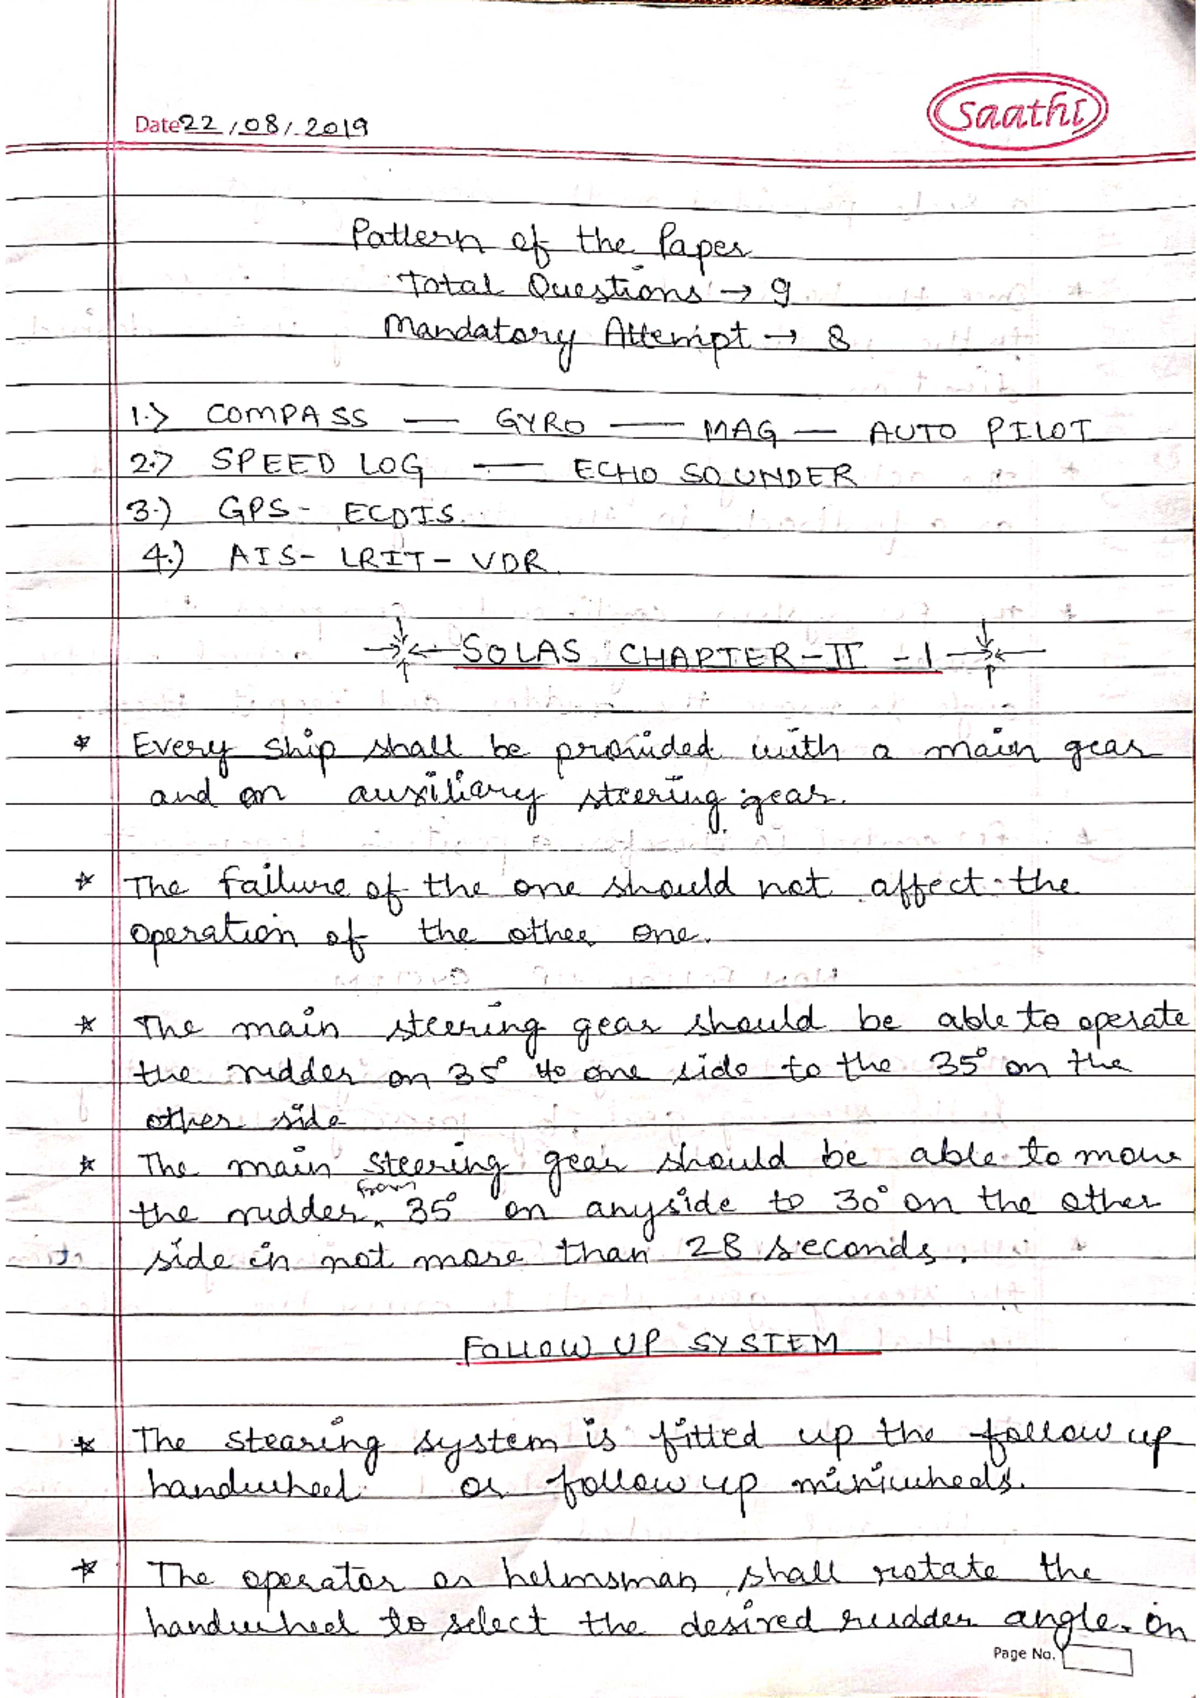 Saathi
Date 22/08/2019
Pattern of the Paper
Total Questions → 9
Mandatory Attempt → 8
1.) COMPASS — GYRO — MAG — AUTO PILOT
2.) SPEED LOG — ECHO SOUNDER
3.) GPS - ECDIS
4.) AIS - LRIT - VDR
SOLAS CHAPTER - II - 1
* Every ship shall be provided with a main gear
and an auxiliary steering gear.
* The failure of the one should not affect the
operation of the other one.
* The main steering gear should be able to operate
the rudder on 35° to one side to the 35° on the
other side
* The main steering gear should be able to move
the rudder from 35° on anyside to 30° on the other
side in not more than 28 seconds.
FOLLOW UP SYSTEM
* The stearing system is fitted up the follow up
handwheel or follow up miniwheels.
* The operator or helmsman shall rotate the
handwheel to select the desired rudder angle. on
Page No.